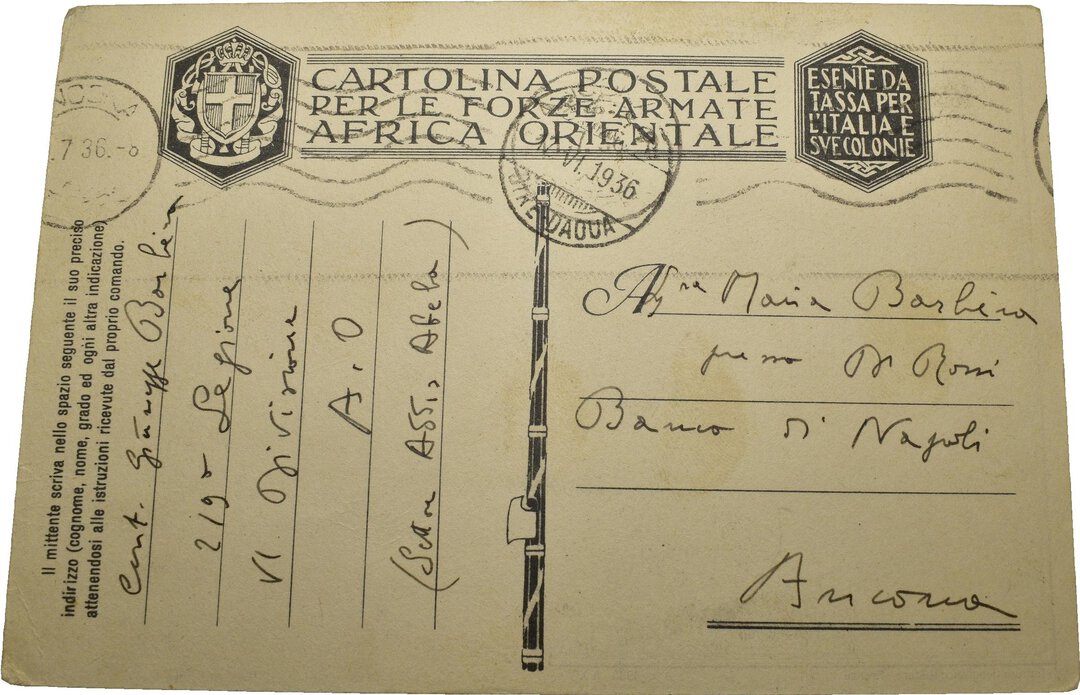 CARTOLINA POSTALE
PER LE FORZE ARMATE
AFRICA ORIENTALE
ESENTE DA
TASSA PER
L'ITALIA E
SVE COLONIE
.7 36.-8
VI. 1936
DAQUA
Il mittente scriva nello spazio seguente il suo preciso
indirizzo (cognome, nome, grado ed ogni altra indicazione)
attenendosi alle istruzioni ricevute dal proprio comando.
Cent. Giuseppe Barbèra
219ª Legione
VI Divisione
A.O
(Settore Abela)
A Sig.ra Maria Barbèra
presso De Rossi
Banco di Napoli
Ancona